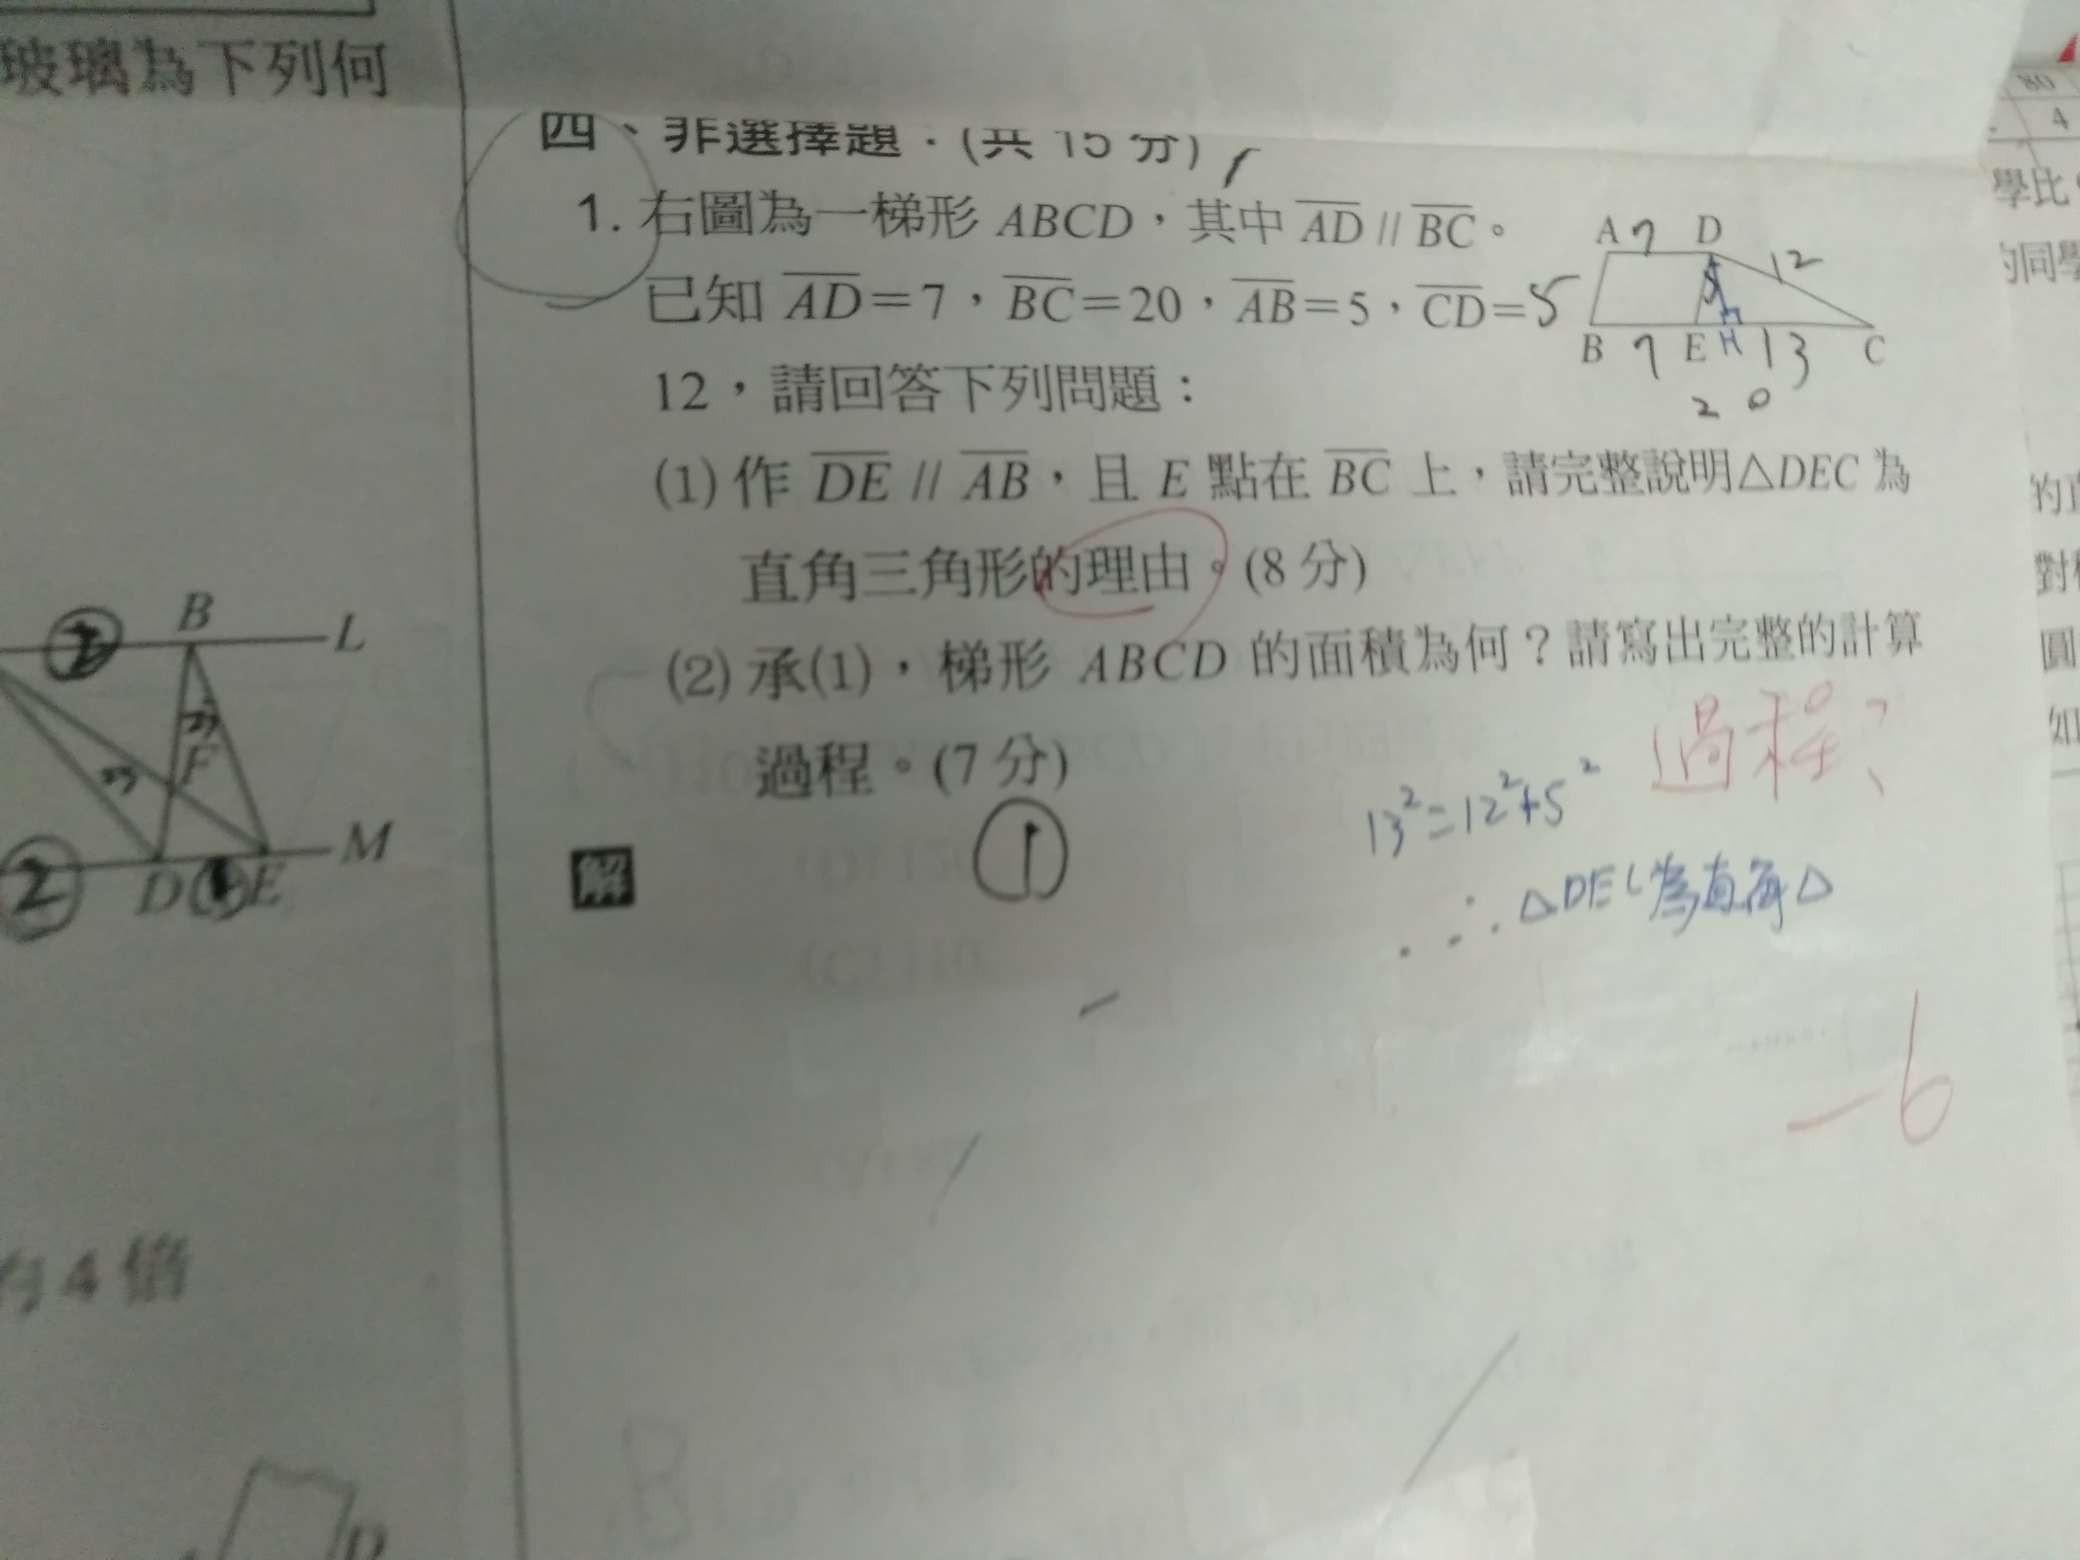 玻璃為下列何
B
L
F
M
2
D
1
E
4 倍
D
四、非選擇題：(共 15 分)
1. 右圖為一梯形 ABCD，其中 AD // BC。
已知 AD＝7，BC＝20，AB＝5，CD＝
12，請回答下列問題：
A 7 D
12
5
B 7 E H 13 C
20
(1) 作 DE // AB，且 E 點在 BC 上，請完整說明△DEC 為
直角三角形的理由。(8 分)
(2) 承(1)，梯形 ABCD 的面積為何？請寫出完整的計算
過程。(7 分)
過程？
解
1
13²=12²+5²
∴△DEC為直角△
-6
80
4
學比
的同學
對
圓
如